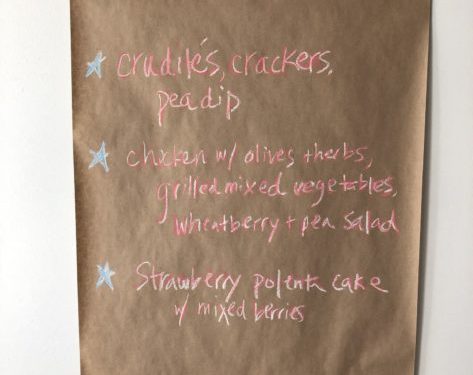 crudilés, crackers,
pea dip
chicken w/ olives + herbs,
grilled mixed vegetables,
wheatberry + pea salad
Strawberry polenta cake
w/ mixed berries